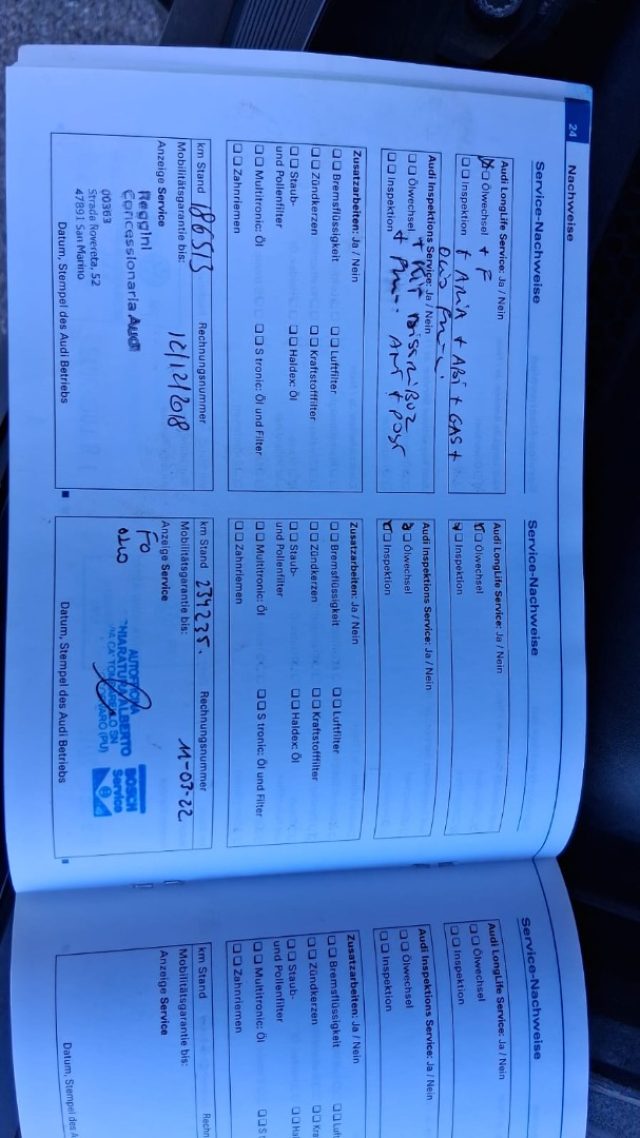 24
Nachweise
Service-Nachweise
Audi LongLife Service: Ja / Nein
Ölwechsel + F
Inspektion
Audi Inspektions Service: Ja / Nein
Ölwechsel
Inspektion
Zusatzarbeiten: Ja / Nein
Bremsflüssigkeit
Luftfilter
Zündkerzen
Kraftstofffilter
Staub-
und Pollenfilter
Haldex: Öl
Multitronic: Öl
S tronic: Öl und Filter
Zahnriemen
km Stand 186513
Rechnungsnummer
Mobilitätsgarantie bis:
12/12/2018
Anzeige Service
Reggini
Concessionaria Audi
00363
Strada Rovereta, 52
47891 San Marino
Datum, Stempel des Audi Betriebs
Service-Nachweise
Audi LongLife Service: Ja / Nein
Ölwechsel
Inspektion
Audi Inspektions Service: Ja / Nein
Ölwechsel
Inspektion
Zusatzarbeiten: Ja / Nein
Bremsflüssigkeit
Luftfilter
Zündkerzen
Kraftstofffilter
Staub-
und Pollenfilter
Haldex: Öl
Multitronic: Öl
S tronic: Öl und Filter
Zahnriemen
km Stand 234235.
Rechnungsnummer
Mobilitätsgarantie bis:
11-07-22
Anzeige Service
AUTOFFICINA
ALBERTO
(PU)
BOSCH
Service
Datum, Stempel des Audi Betriebs
Service-Nachweise
Audi LongLife Service: Ja / Nein
Ölwechsel
Inspektion
Audi Inspektions Service: Ja / Nein
Ölwechsel
Inspektion
Zusatzarbeiten: Ja / Nein
Bremsflüssigkeit
Luft
Zündkerzen
Kra
Staub-
und Pollenfilter
Hal
Multitronic: Öl
S t
Zahnriemen
km Stand
Rechn
Mobilitätsgarantie bis:
Anzeige Service
Datum, Stempel des A